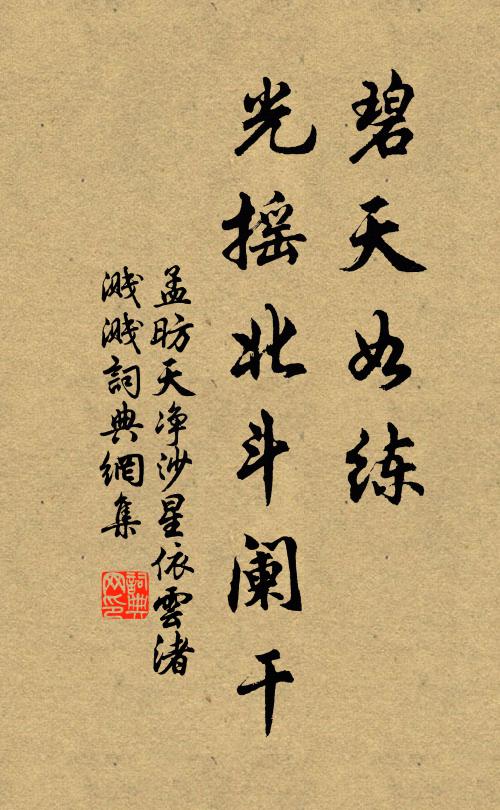 碧天如练
光摇北斗阑干
孟昉天净沙星依雲渚
溅溅詞典網集
詞典
网印